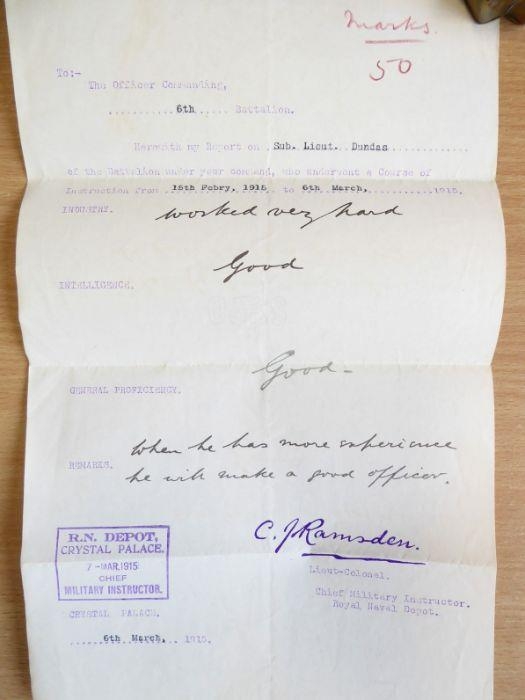 Marks.
50
To:-
The Officer Commanding,
..........6th..... Battalion.
Herewith my Report on Sub. Lieut. Dundas.............
of the Battalion under your command, who underwent a Course of
Instruction from 15th Febry, 1915 to 6th March,............1915.
INDUSTRY. Worked very hard
Good
INTELLIGENCE.
Good -
GENERAL PROFICIENCY.
When he has more experience
REMARKS. he will make a good officer.
C. J Ramsden.
R.N. DEPOT,
CRYSTAL PALACE.
7-MAR.1915
CHIEF
MILITARY INSTRUCTOR.
Lieut-Colonel.
Chief Military Instructor.
Royal Naval Depot.
CRYSTAL PALACE.
......6th March, .... 1915.